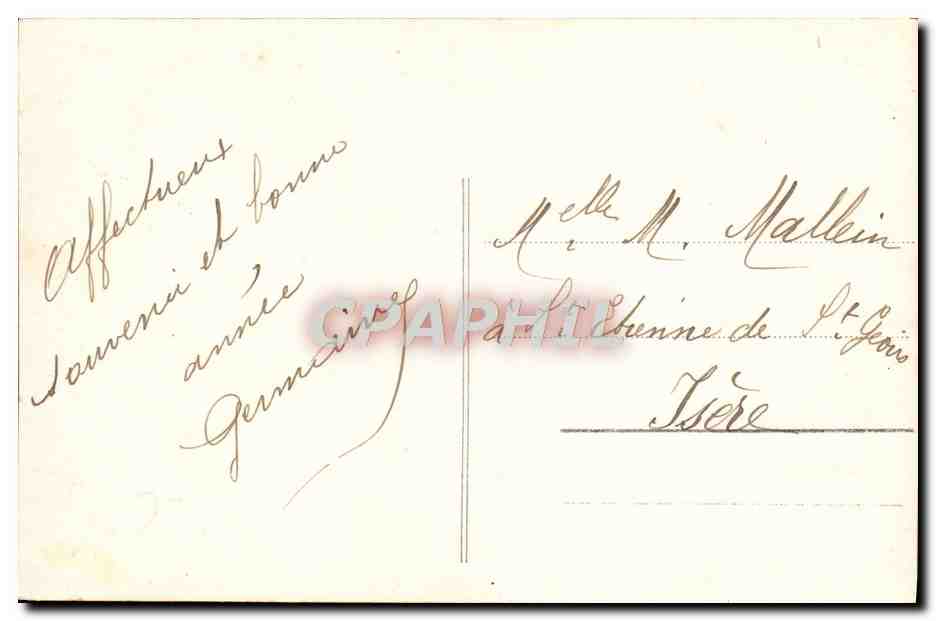 Affectueux
souvenir et bonne
année
Germaine
Melle. M. Mallein
à St Etienne de St. Geoirs
Isère
CPAPHIL